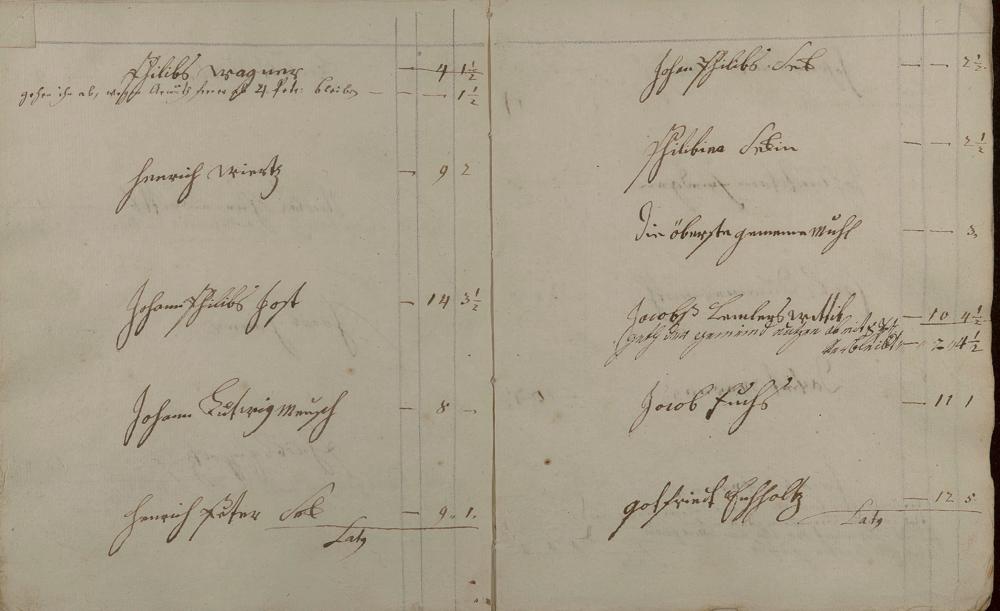 Philibs Wagner — 4 1½
gehen ihn ab, wegen 4 bleiben — — 1½
Henrich Wiertz — 9 2
Johann Philibs Host — 14 3½
Johann Ludwig Mensch — 8 —
Henrich Peter Seb — 9 1
Latg
Johan Philibs Seb — — 2½
Philibina Sebin — — 2½
Die öberste gemeine Muhl — — 3
Jacobs Lemlers Wittib — 10 4½
geth der gemeind ab mit
verbleibt — 2 4½
Jacob Fuchs — 11 1
gotfriedt Eichholtz — 12 5
Latg